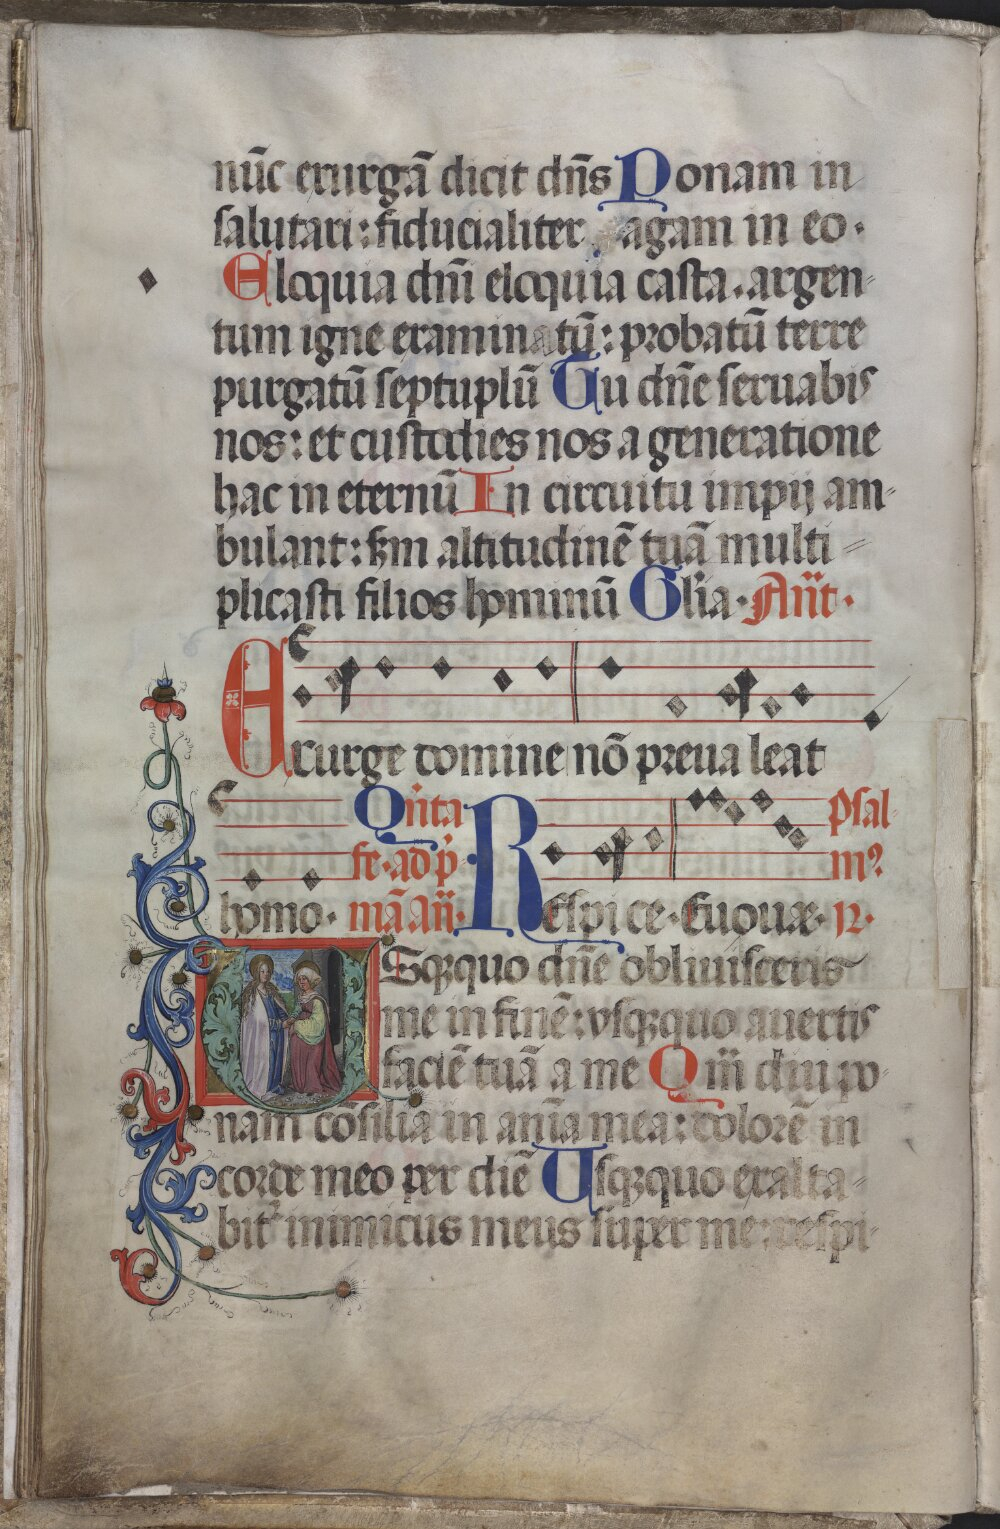 nūc exurgā dicit dn̄s Ponam in
salutari: fiducialiter agam in eo.
Eloquia dn̄i eloquia casta. argen-
tum igne examinatū: probatū terre
purgatū septuplū Tu dn̄e seruabis
nos: et custodies nos a generatione
hac in eternū In circuitu impij am-
bulant: scd̄m altitudinē tuā multi-
plicasti filios hominū Gl̄ia. Añt.
Exurge domine nō preua leat
Qn̄ta Psal
fe. ad p̄ m?
homo. mā añ. Respice. Euouæ. 12.
Usqzquo dn̄e obliuisceris
me in finē: vsqzquo auertis
faciē tuā a me Qm̄ diu po-
nam cōsilia in anīa mea: dolorē in
corde meo per diē Usqzquo exalta-
bit᷑ inimicus meus super me: respi-